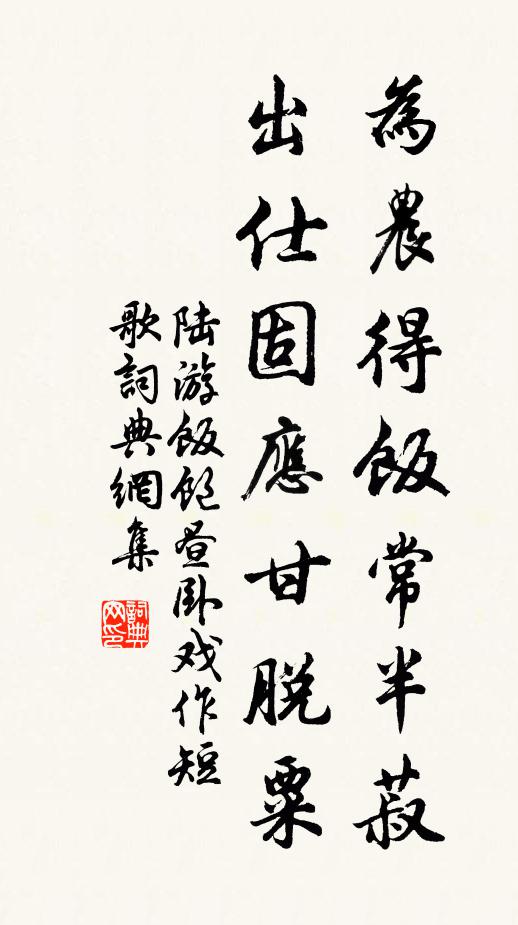 為農得飯常半菽
出仕固應甘脫粟
陆游飯飽昼卧戏作短
歌詞典網集
詞典
网印